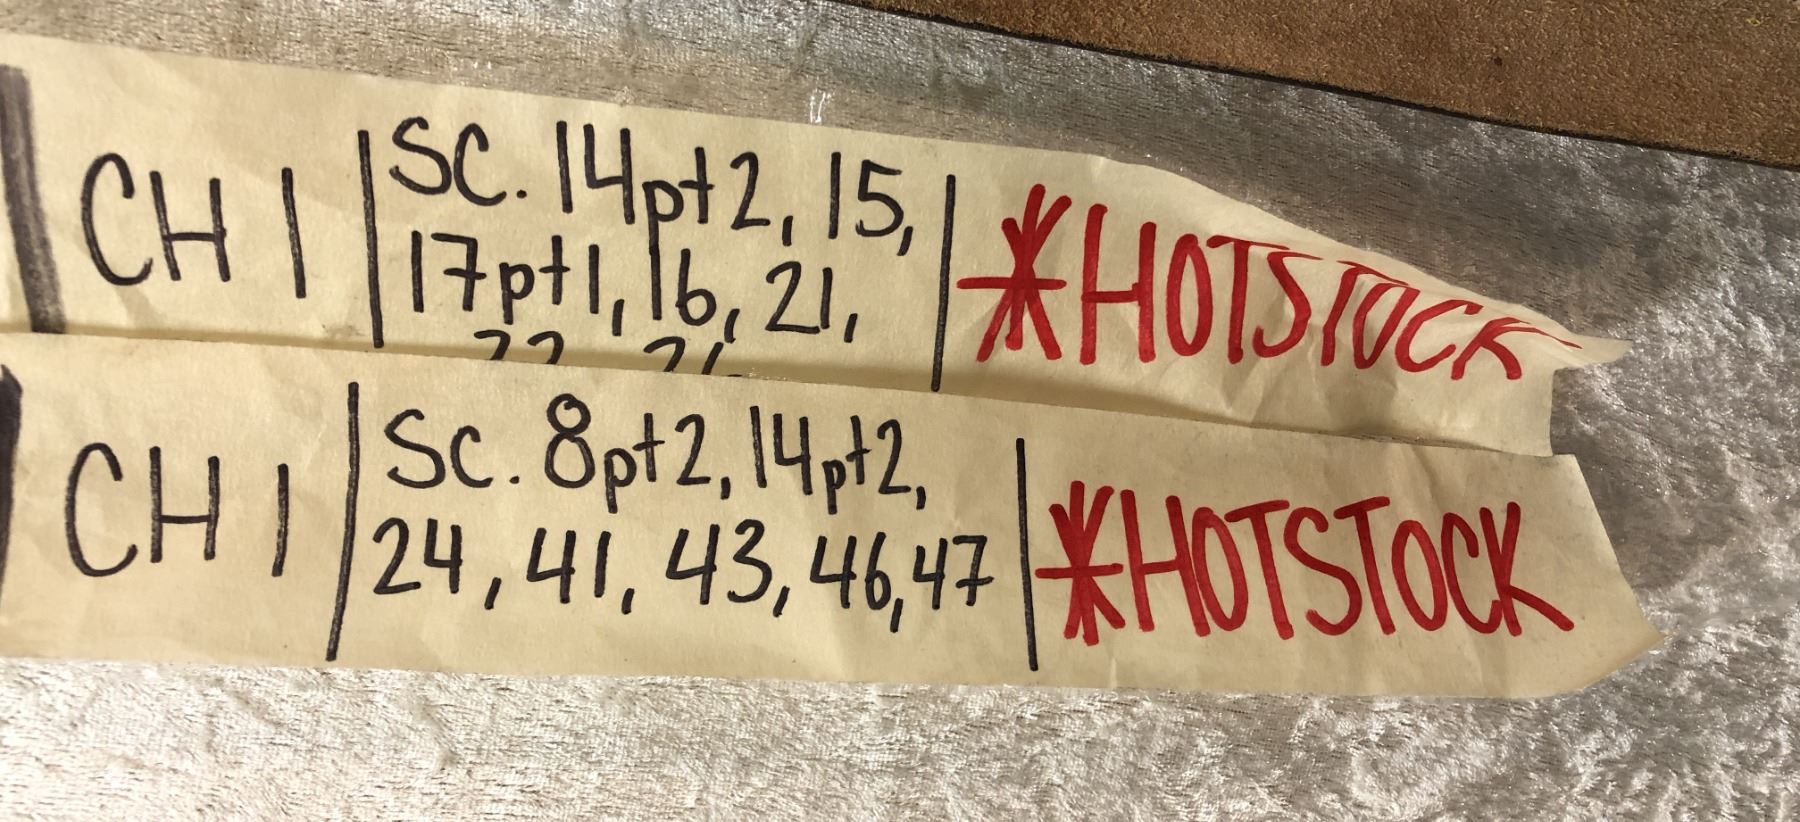 CH 1 | SC. 14pt2, 15, | *HOTSTOCK
17pt1, 16, 21,
CH 1 | SC. 8pt2, 14pt2, | *HOTSTOCK
24, 41, 43, 46, 47